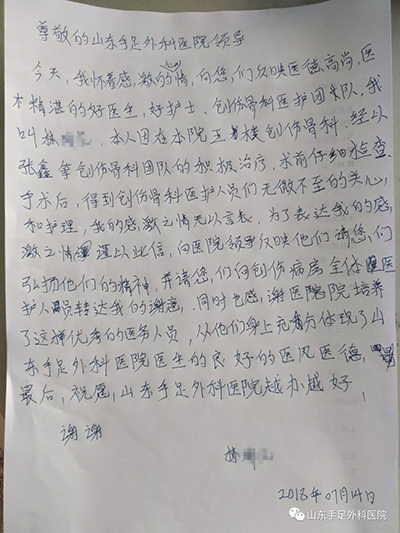 尊敬的山东手足外科医院领导
今天,我怀着感激的心情,向您们反映医德高尚,医
术精湛的好医生,好护士、创伤骨科医护团队。我
叫林 本人因在本院五楼创伤骨科.经以
张鑫等创伤骨科团队的积极治疗.术前仔细检查.
手术后,得到创伤骨科医护人员们无微不至的关心,
和护理,我的感激之情无以言表、为了表达我的感
激之情 谨上以此信,向医院领导反映他们 请您们
弘扬他们的精神,并请您们向创伤病房全体医
护人员转达我的谢意.同时也感谢医院 培养
了这样优秀的医务人员,从他们身上充分体现了山
东手足外科医院医生的良好的医风医德,
最后,祝愿,山东手足外科医院越办越好!
谢谢
林
2018年07月14日
山东手足外科医院